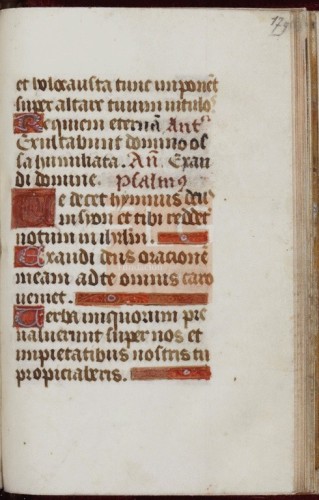 179
et holocausta tunc imponēt
super altare tuum vitulos
Requiem eternā Antᵃ
Exultabunt domino os
sa humiliata. Añ. Exau
di domine. psalmꝰ
Te decet hymnus deus
in sion et tibi reddet̄
votum in ihrl̄m.
Exaudi deus oracionē
meam ad te omnis caro
veniet.
Verba iniquorum pre
valuerunt super nos et
impietatibus nostris tu
propiciaberis.